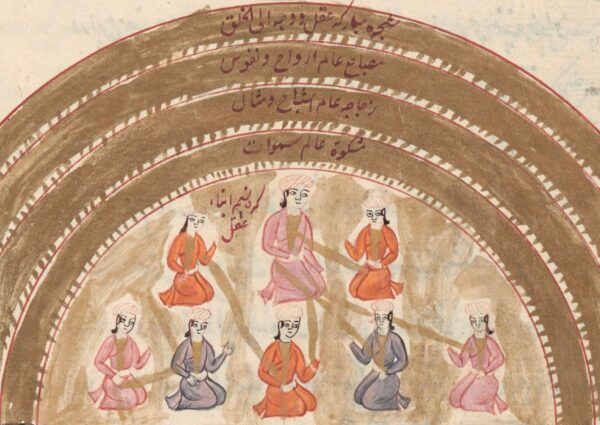 شجره مبارکه عقل و وجه الی الخلق
مصباح عالم ارواح و نفوس
زجاجه عالم اشباح و مثال
مشکوة عالم سموات
عقل